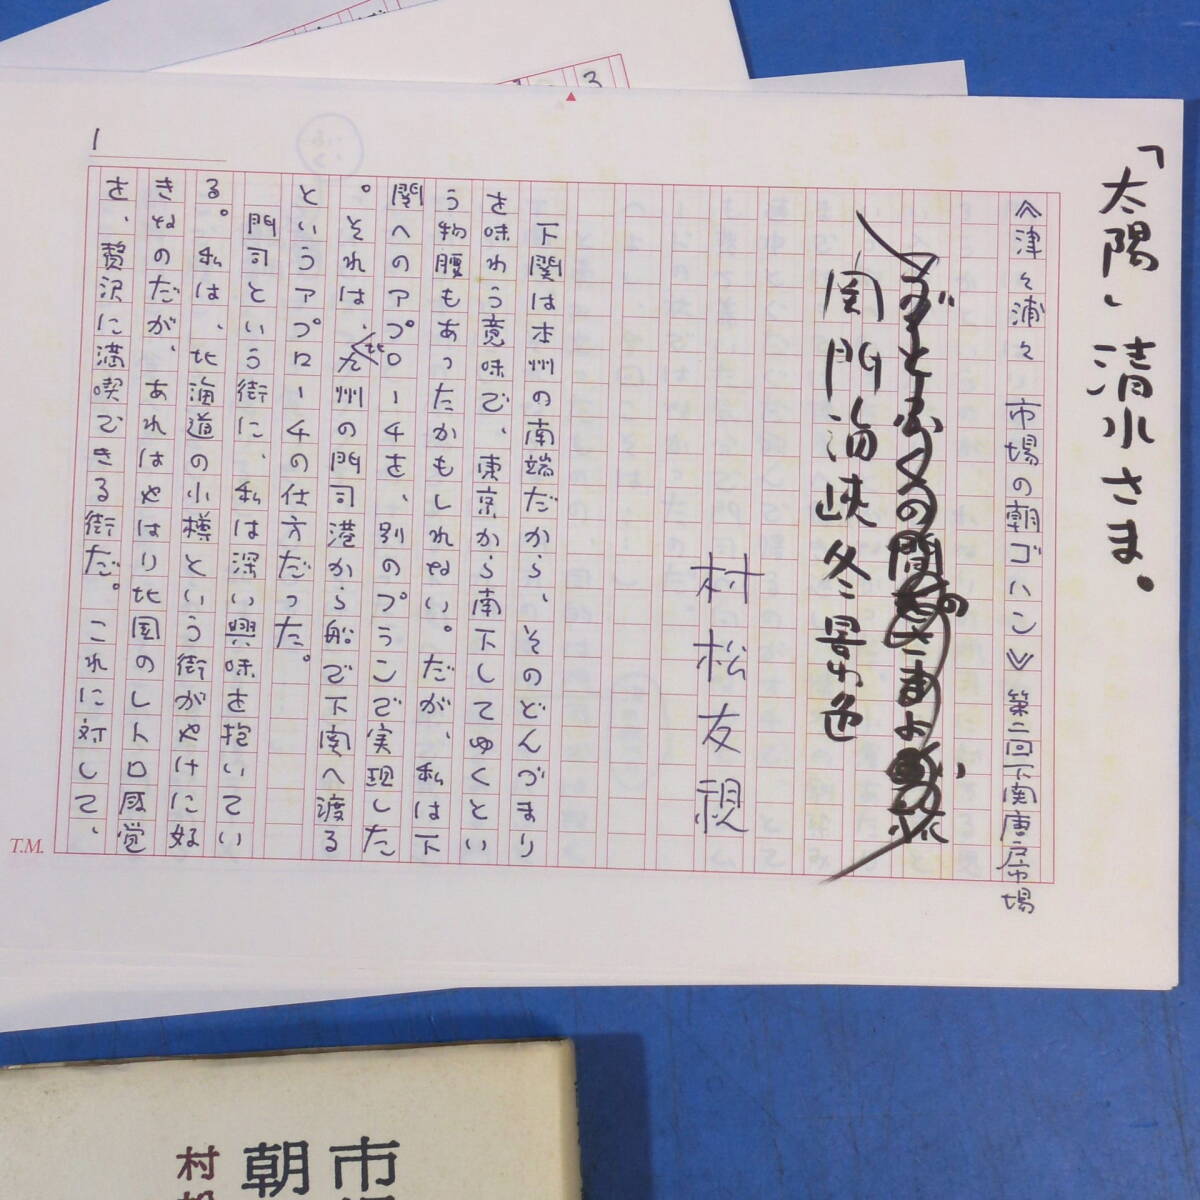 「太陽」清水さま。
≪津々浦々い市場の朝ゴハン≫第二回下関唐戸市場
関門海峡冬景色
村松友視
下関は本州の南端だから、そのどんづまり
を味わう意味で、東京から南下してゆくとい
う物腰もあったかもしれない。だが、私は下
関へのアプローチを、別のプランで実現した
。それは、北九州の門司港から船で下関へ渡る
というアプローチの仕方だった。
門司という街に、私は深い興味を抱いてい
る。私は、北海道の小樽という街がやけに好
きなのだが、あれはやはり北国のレトロ感覚
を、贅沢に満喫できる街だ。これに対して、
1
T.M.
3
市
朝
村松